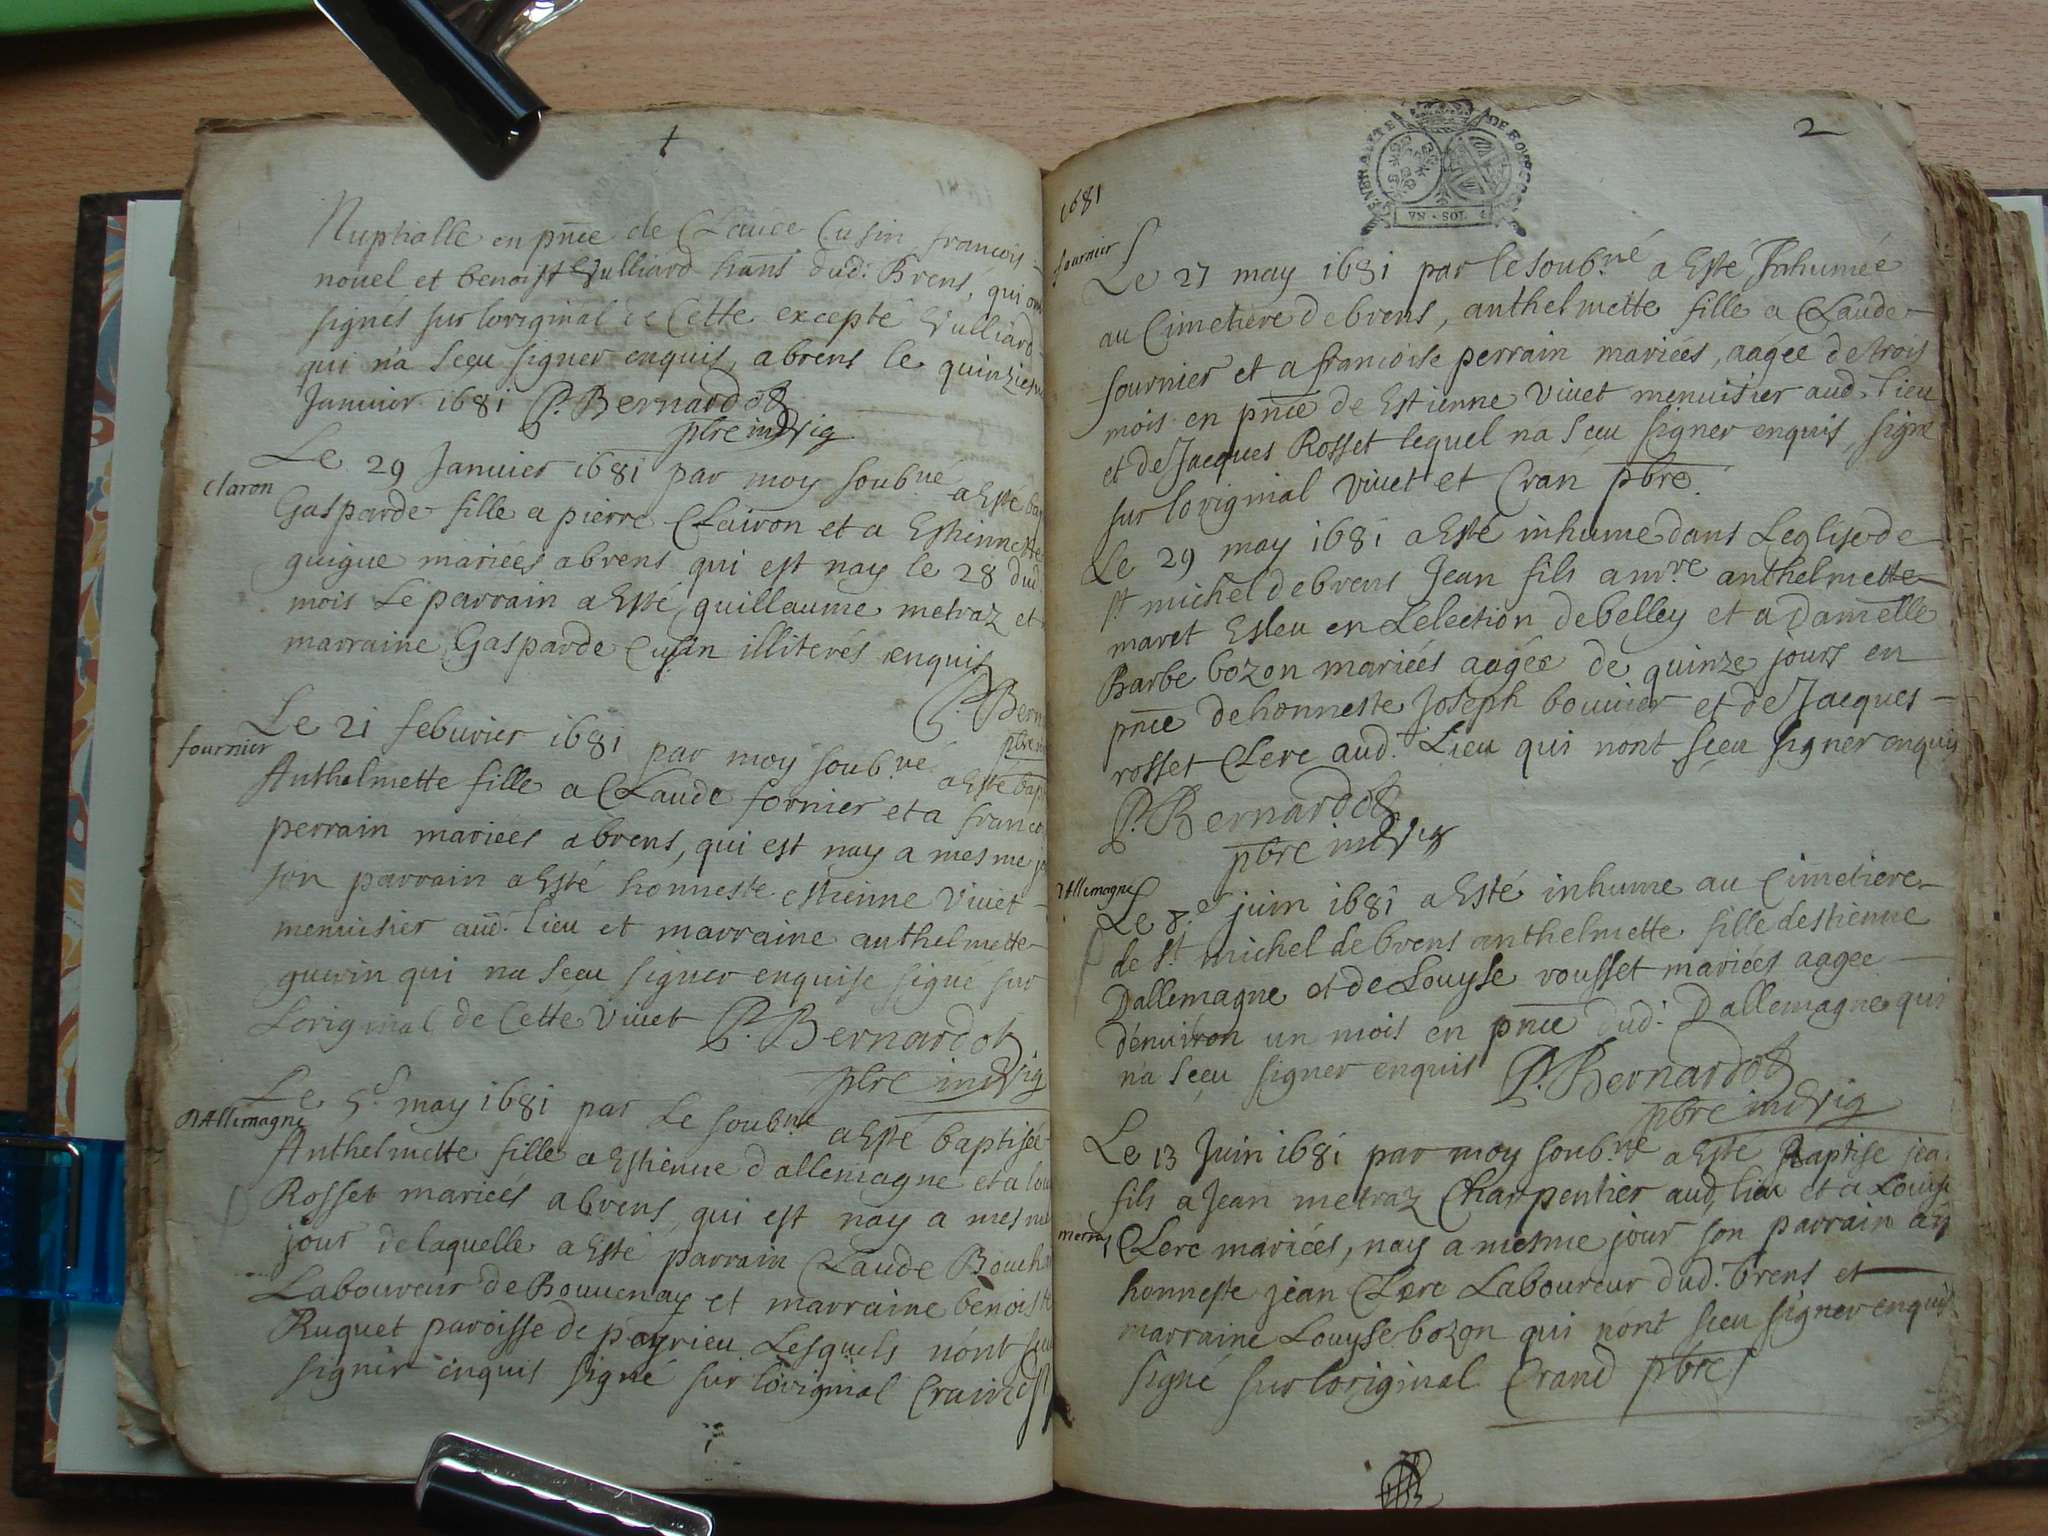 Nuptialle en pnce de Claude Cusin, francois
nouel et benoist Vulliard hans dud. Brens, qui ont
signés sur loriginal de Cette excepté Vulliard
qui na sceu signer enquis, a brens le quinzie
Januier 1681 P. Bernardot
pbre indig
claron
Le 29 Januier 1681 par moy soub.né a Esté bap
Gasparde fille a pierre Clairon et a Estiennette
guigue mariées a brens qui est nay le 28 dud.
mois Le parrain a Esté guillaume metraz et
marraine Gasparde Cusin illiterés enquis
P. Bern
pbre in
fournier
Le 21 feburier 1681 par moy soub.né a Esté bap
Anthelmette fille a Claude fornier et a franco
perrain mariées a brens, qui est nay a mesme jo
son parrain a Esté honneste estienne Viuet
menuisier aud. lieu et marraine anthelmette
guerin qui na sceu signer enquise signé sur
Loriginal de Cette Viuet P. Bernardot
pbre indig
DAllemagne
Le 5.e may 1681 par Le soub.né a Esté baptisée
Anthelmette fille a Estienne d'allemagne et a lou
Rosset mariees a brens, qui est nay a mesme
jour de laquelle a Esté parrain Claude Bouchar
Laboureur de Bouuenay et marraine benoiste
Ruquet paroisse de peyrieu Lesquels nont sceu
signer enquis signé sur loriginal Crand
2
GENERALITE DE BOURGOGNE
VN · SOL
1681
fournier
Le 27 may 1681 par le soub.né a Esté Inhumée
au Cimetiere de brens, anthelmette fille a Claude
fournier et a francoise perrain mariées, aagée de trois
mois en pnce de Estienne Viuet menuisier aud. lieu
et de Jacques Rosset lequel na sceu signer enquis, signé
sur loriginal Viuet et Cran pbre.
Le 29 may 1681 a Esté inhume dans Leglise de
st michel de brens Jean fils a mre anthelmette
maret Esleu en Lelection de belley et a Damelle
Barbe bozon mariées aagée de quinze jours en
pnce de honneste Joseph bouuier et de Jacques
rosset Clerc aud. Lieu qui nont sceu signer enquis
P. Bernardot
pbre indig
DAllemagne
Le 8.e juin 1681 a Esté inhume au Cimetiere
de st. michel de brens anthelmette fille destienne
Dallemagne et de Louyse rousset mariées aagee
denuiron un mois en pnce dud. Dallemagne qui
na sceu signer enquis P. Bernardot
pbre indig
Le 13 Juin 1681 par moy soub.né a Esté Baptise jea
fils a Jean metraz Charpentier aud. lieu et a Louyse
metraz
Clerc mariées, nay a mesme jour son parrain a
honneste jean Clerc Laboureur dud. brens et
marraine Louyse bozon qui nont sceu signer enquis
signé sur loriginal Crand pbre